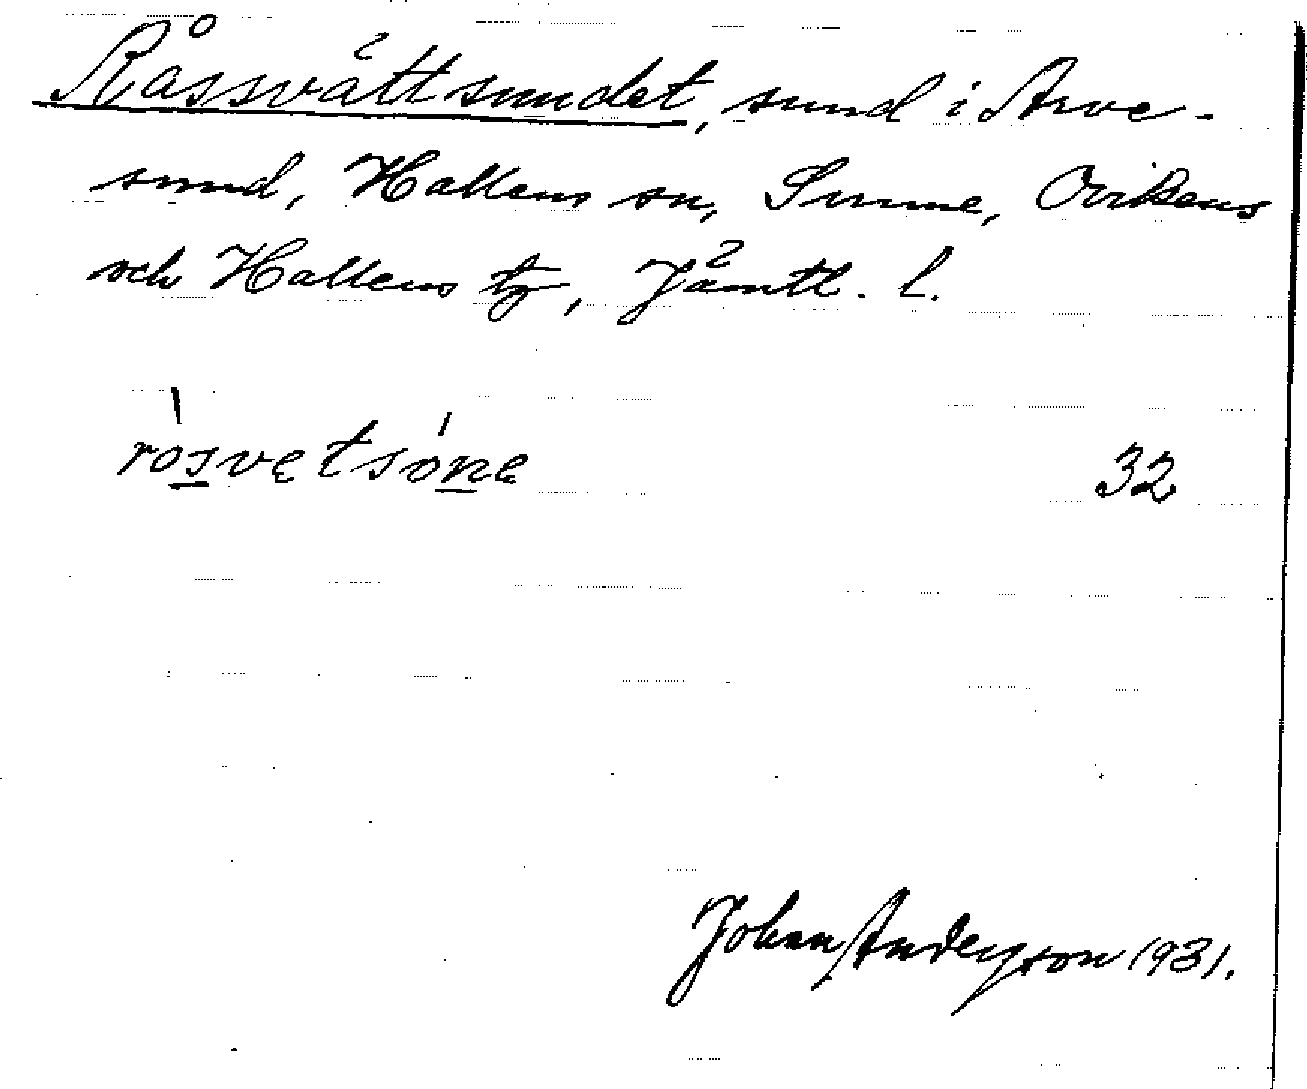 Råssvättsundet, sund i Arve-
sund, Hallens sn, Sunne, Ovikens
och Hallens tg, Jämtl. l.
rosvetsone 32
Johan Andersson 1931.